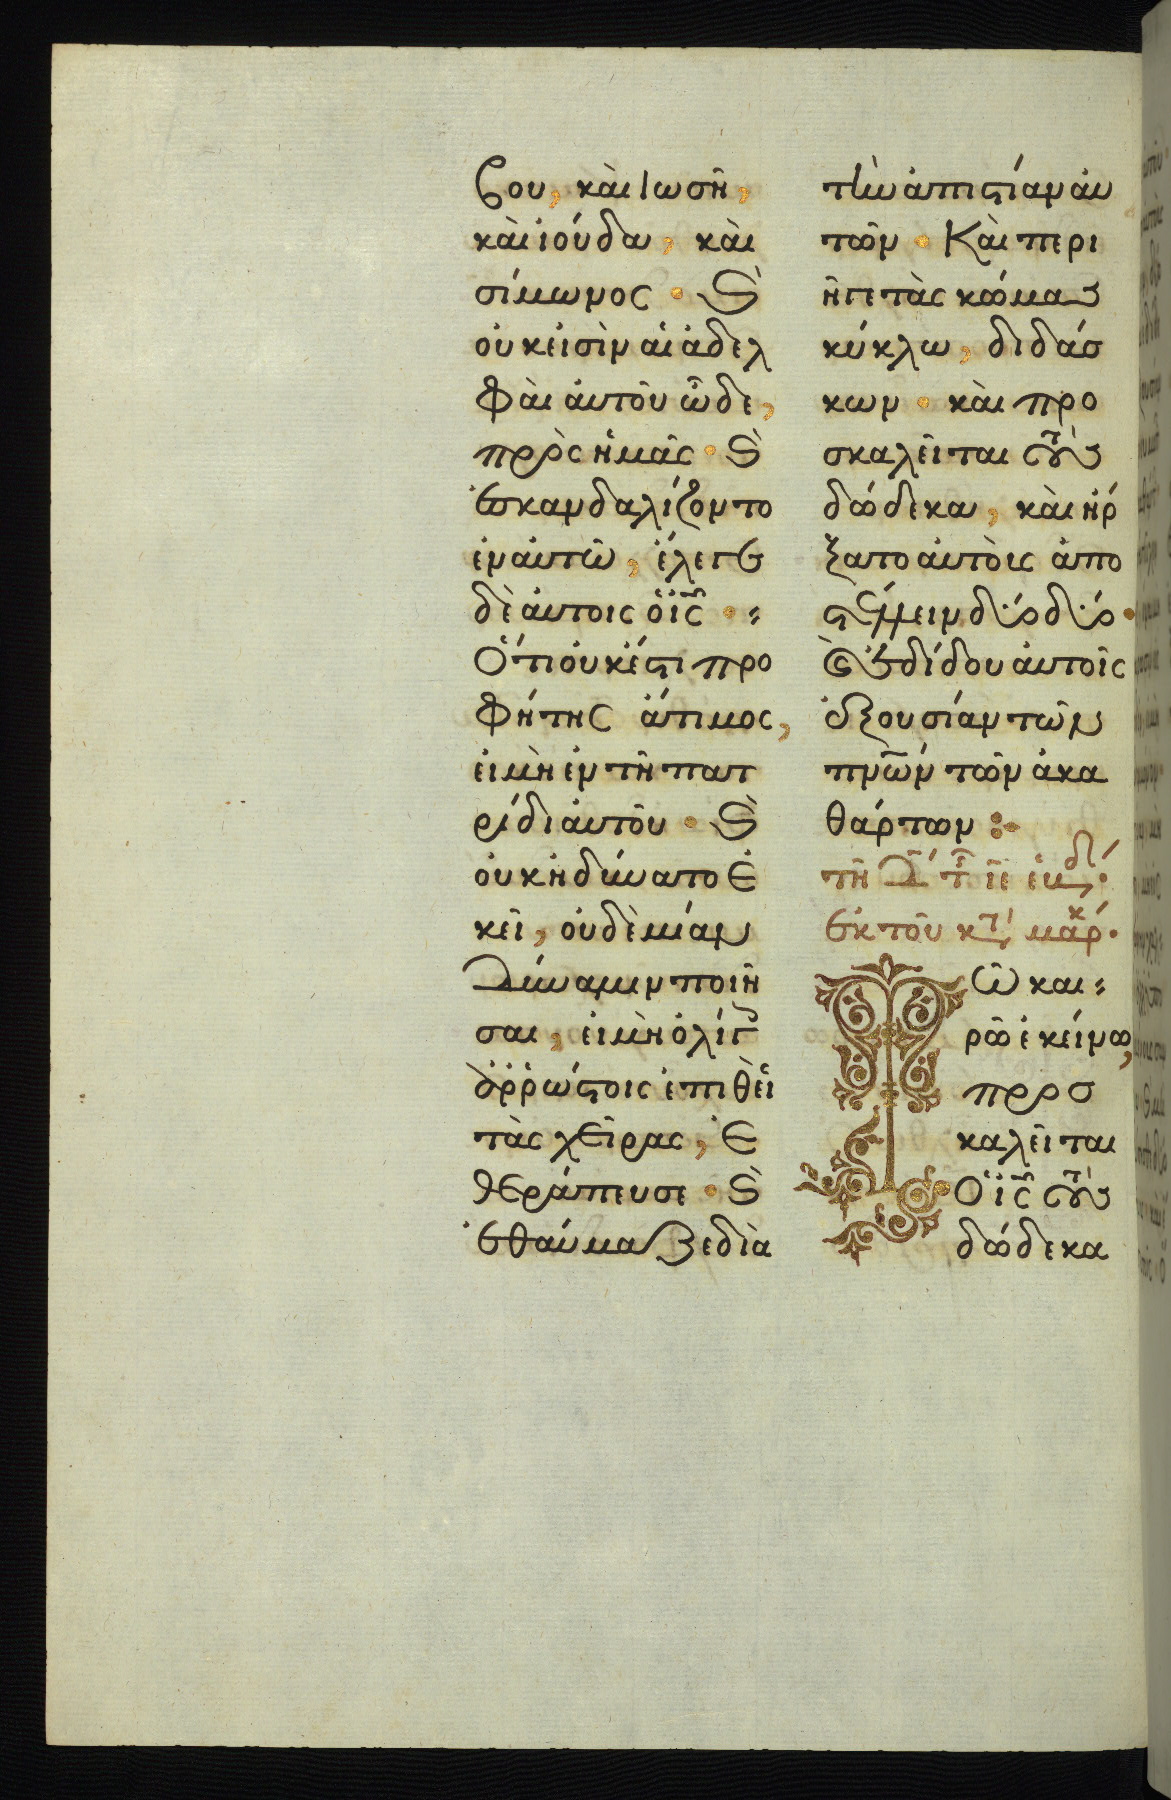 βου, καὶ Ιωσῆ,
καὶ ἰούδα, καὶ
σίμωνος · Ϗ̀
οὐκ εἰσὶν αἱ ἀδελ
φαὶ ἀυτοῦ ὧδε,
πρὸς ἡμᾶς · Ϗ̀
ἐσκανδαλίζοντο
ἐν ἀυτῶ, ἔλεγε
δὲ ἀυτοις ὁ ἰ̅ς̅ ·
Ὅτι ὀυκ ἔστι προ
φήτης ἄτιμος,
εἰ μὴ ἐν τῆ πατ
ρίδι ἀυτοῦ · Ϗ̀
οὐκ ἠδύνατο ἐ
κεῖ, οὐδὲμίαν
δύναμιν ποιῆ
σαι, εἰ μὴ ὀλίγ
ἀῤῥώστοις ἐπιθεὶ
τὰς χεῖρας, ἐ
θεράπευσε · Ϗ̀
ἐθαύμαζε διὰ
τὴν ἀπιστίαν ἀυ
τῶν · Καὶ περι
ῆγε τὰς κώμας
κύκλω, διδάσ
κων · καὶ προ
σκαλεῖται τοὺς
δώδεκα, καὶ ἤρ
ξατο ἀυτοὺς ἀπο
στέλλειν δύο δύο ·
Ϗ̀ ἐδίδου ἀυτοῖς
ἐξουσίαν τῶν
πν̅ων τῶν ἀκα
θάρτων :·
τῆ
ἐκ τοῦ κτ μάρκ ·
Τῶ και
ρῶ ἐκείνω,
προσ
καλεῖται
Ὁ ἰ̅ς̅ τοὺς
δώδεκα